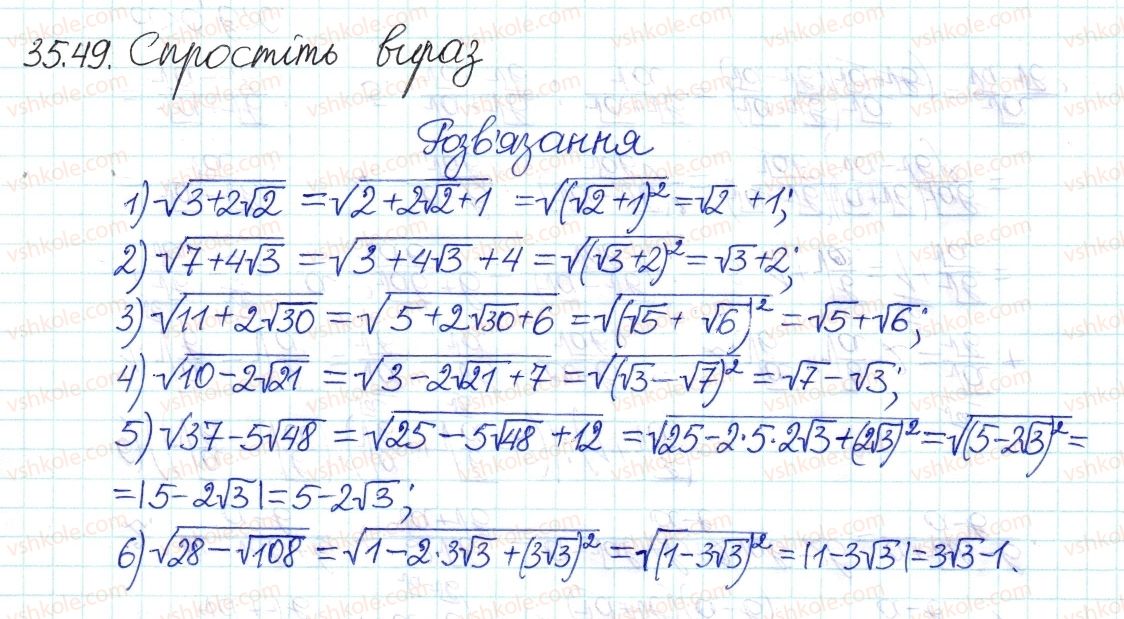 35.49. Спростіть вираз
Розв'язання
1) √(3+2√2) = √(2+2√2+1) = √((√2+1)²) = √2 +1;
2) √(7+4√3) = √(3+4√3+4) = √((√3+2)²) = √3+2;
3) √(11+2√30) = √(5+2√30+6) = √((√5+√6)²) = √5+√6;
4) √(10-2√21) = √(3-2√21+7) = √((√3-√7)²) = √7-√3;
5) √(37-5√48) = √(25-5√48+12) = √(25-2·5·2√3+(2√3)²) = √((5-2√3)²) =
= |5-2√3| = 5-2√3;
6) √(28-√108) = √(1-2·3√3+(3√3)²) = √((1-3√3)²) = |1-3√3| = 3√3-1.